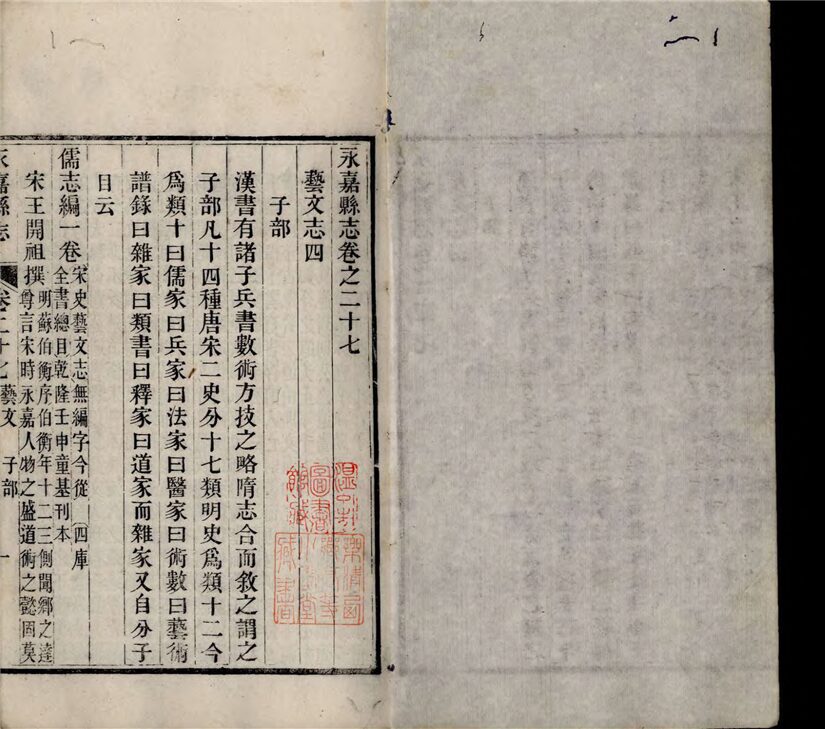 永嘉縣志卷之二十七
藝文志四
子部
漢書有諸子兵書數術方技之略隋志合而敘之謂之
子部凡十四種唐宋二史分十七類明史爲類十二今
爲類十曰儒家曰兵家曰法家曰醫家曰術數曰藝術
譜錄曰雜家曰類書曰釋家曰道家而雜家又自分子
目云
儒志編一卷
宋史藝文志無編字今從
四庫
全書總目乾隆壬申童基刊本
宋王開祖撰
明蘇伯衡序伯衡年十二三側聞鄉之達
尊言宋時永嘉人物之盛道術之懿固莫
永嘉縣志
卷二十七藝文 子部
一